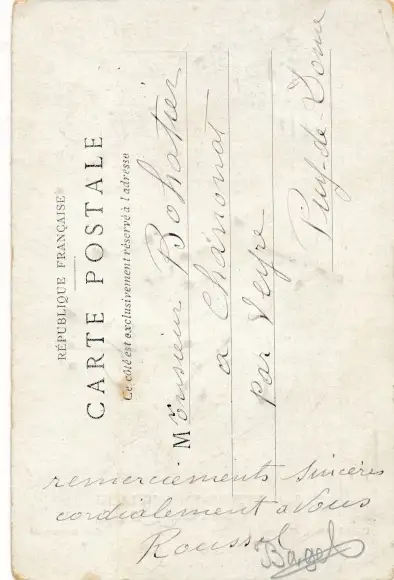 RÉPUBLIQUE FRANÇAISE
CARTE POSTALE
Ce côté est exclusivement réservé à l'adresse
Monsieur Bohatier
a Chanonat
par Veyre
Puy-de-Dome
remerciements sincères
cordialement a Vous
Roussel